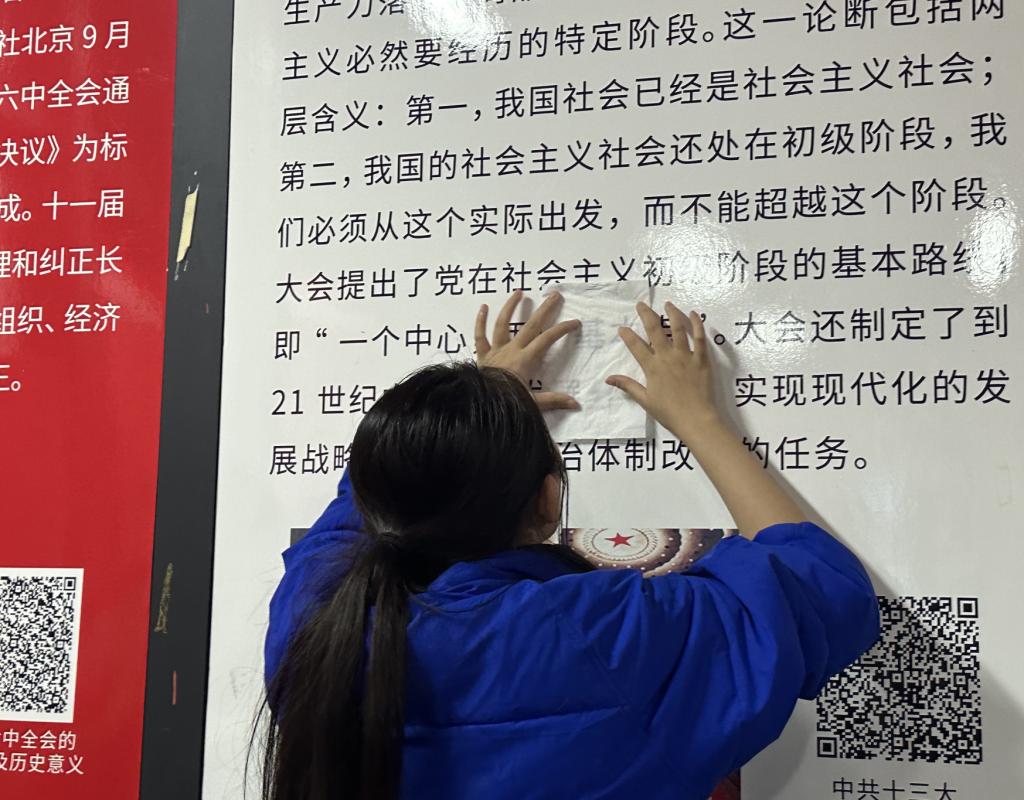 社北京9月
六中全会通
决议》为标
成。十一届
理和纠正长
组织、经济
正。
中全会的
及历史意义
生产力落
主义必然要经历的特定阶段。这一论断包括两
层含义：第一，我国社会已经是社会主义社会；
第二，我国的社会主义社会还处在初级阶段，我
们必须从这个实际出发，而不能超越这个阶段。
大会提出了党在社会主义初级阶段的基本路线，
即“一个中心、 基本 ”。大会还制定了到
21 世纪 实现现代化的发
展战略 治体制改 的任务。
中共十三大